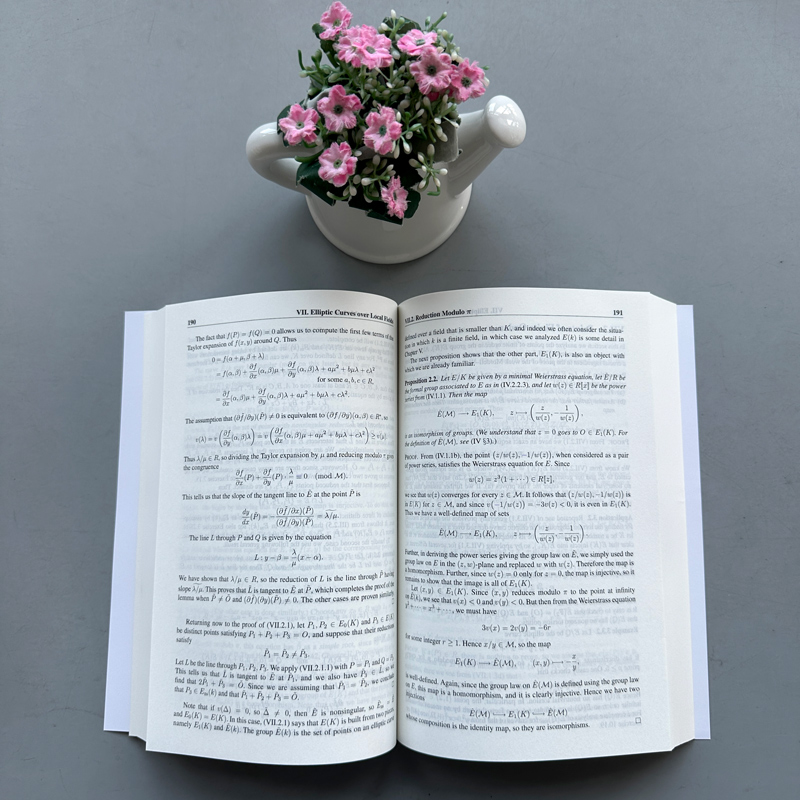 190
VII. Elliptic Curves over Local Fields
The fact that f(P) = f(Q) = 0 allows us to compute the first few terms of the
Taylor expansion of f(x, y) around Q. Thus
0 = f(α + μ, β + λ)
= f(α, β) + ∂f/∂x (α, β)μ + ∂f/∂y (α, β)λ + aμ² + bμλ + cλ²
for some a, b, c ∈ R,
= ∂f/∂x (α, β)μ + ∂f/∂y (α, β)λ + aμ² + bμλ + cλ².
The assumption that (∂f̃/∂y)(P̃) ≠ 0 is equivalent to (∂f/∂y)(α, β) ∈ R*, so
v(λ) = v(∂f/∂y (α, β)λ) = v(∂f/∂x (α, β)μ + aμ² + bμλ + cλ²) ≥ v(μ)
Thus λ/μ ∈ R, so dividing the Taylor expansion by μ and reducing modulo π gives
the congruence
∂f/∂x (P) + ∂f/∂y (P) · λ/μ ≡ 0 (mod M).
This tells us that the slope of the tangent line to Ẽ at the point P̃ is
dy/dx (P̃) = − (∂f̃/∂x)(P̃) / (∂f̃/∂y)(P̃) = λ/μ.
The line L through P and Q is given by the equation
L : y − β = λ/μ (x − α).
We have shown that λ/μ ∈ R, so the reduction of L is the line through P̃ having
slope λ/μ. This proves that L̃ is tangent to Ẽ at P̃, which completes the proof of the
lemma when P̃ ≠ Õ and (∂f̃)(∂y)(P̃) ≠ 0. The other cases are proven similarly.
Returning now to the proof of (VII.2.1), let P₁, P₂ ∈ E₀(K) and P₃ ∈ E(K)
be distinct points satisfying P₁ + P₂ + P₃ = O, and suppose that their reductions
satisfy
P̃₁ = P̃₂ ≠ P̃₃.
Let L be the line through P₁, P₂, P₃. We apply (VII.2.1.1) with P = P₁ and Q = P₂.
This tells us that L̃ is tangent to Ẽ at P̃₁, and we also have P̃₃ ∈ L̃, so we
find that 2P̃₁ + P̃₃ = Õ. Since we are assuming that P̃₁ = P̃₂, we conclude
that P₃ ∈ Eₙₛ(k) and that P̃₁ + P̃₂ + P̃₃ = Õ.
Note that if v(Δ) = 0, so Δ̃ ≠ 0, then Ẽ is nonsingular, so Ẽₙₛ = Ẽ
and E₀(K) = E(K). In this case, (VII.2.1) says that E(K) is built from two parts,
namely E₁(K) and Ẽ(k). The group Ẽ(k) is the set of points on an elliptic curve
VII.2. Reduction Modulo π
191
defined over a field that is smaller than K, and indeed we often consider the situa-
tion in which k is a finite field, in which case we analyzed E(k) is some detail in
Chapter V.
The next proposition shows that the other part, E₁(K), is also an object with
which we are already familiar.
Proposition 2.2. Let E/K be given by a minimal Weierstrass equation, let Ê/R be
the formal group associated to E as in (IV.2.2.3), and let w(z) ∈ R[z] be the power
series from (IV.1.1). Then the map
Ê(M) ⟶ E₁(K), z ⟼ (z/w(z), −1/w(z)),
is an isomorphism of groups. (We understand that z = 0 goes to O ∈ E₁(K). For
the definition of Ê(M), see (IV §3).)
PROOF. From (IV.1.1b), the point (z/w(z), −1/w(z)), when considered as a pair
of power series, satisfies the Weierstrass equation for E. Since
w(z) = z³(1 + ⋯) ∈ R[z],
we see that w(z) converges for every z ∈ M. It follows that (z/w(z), −1/w(z)) is
in E(K) for z ∈ M, and since v(−1/w(z)) = −3v(z) < 0, it is even in E₁(K).
Thus we have a well-defined map of sets
Ê(M) ⟶ E₁(K), z ⟼ (z/w(z), −1/w(z))
Further, in deriving the power series giving the group law on Ê, we simply used the
group law on E in the (z, w)-plane and replaced w with w(z). Therefore the map is
a homomorphism. Further, since w(z) = 0 only for z = 0, the map is injective, so it
remains to show that the image is all of E₁(K).
Let (x, y) ∈ E₁(K). Since (x, y) reduces modulo π to the point at infinity
Ẽ(k), we see that v(x) < 0 and v(y) < 0. But then from the Weierstrass equation
y² + ⋯ = x³ + ⋯, we must have
3v(x) = 2v(y) = −6r
for some integer r ≥ 1. Hence x/y ∈ M, so the map
E₁(K) ⟶ Ê(M), (x, y) ⟼ −x/y,
is well-defined. Again, since the group law on Ê(M) is defined using the group law
on E, this map is a homomorphism, and it is clearly injective. Hence we have two
injections
Ê(M) ⟶ E₁(K) ⟶ Ê(M)
whose composition is the identity map, so they are isomorphisms. □